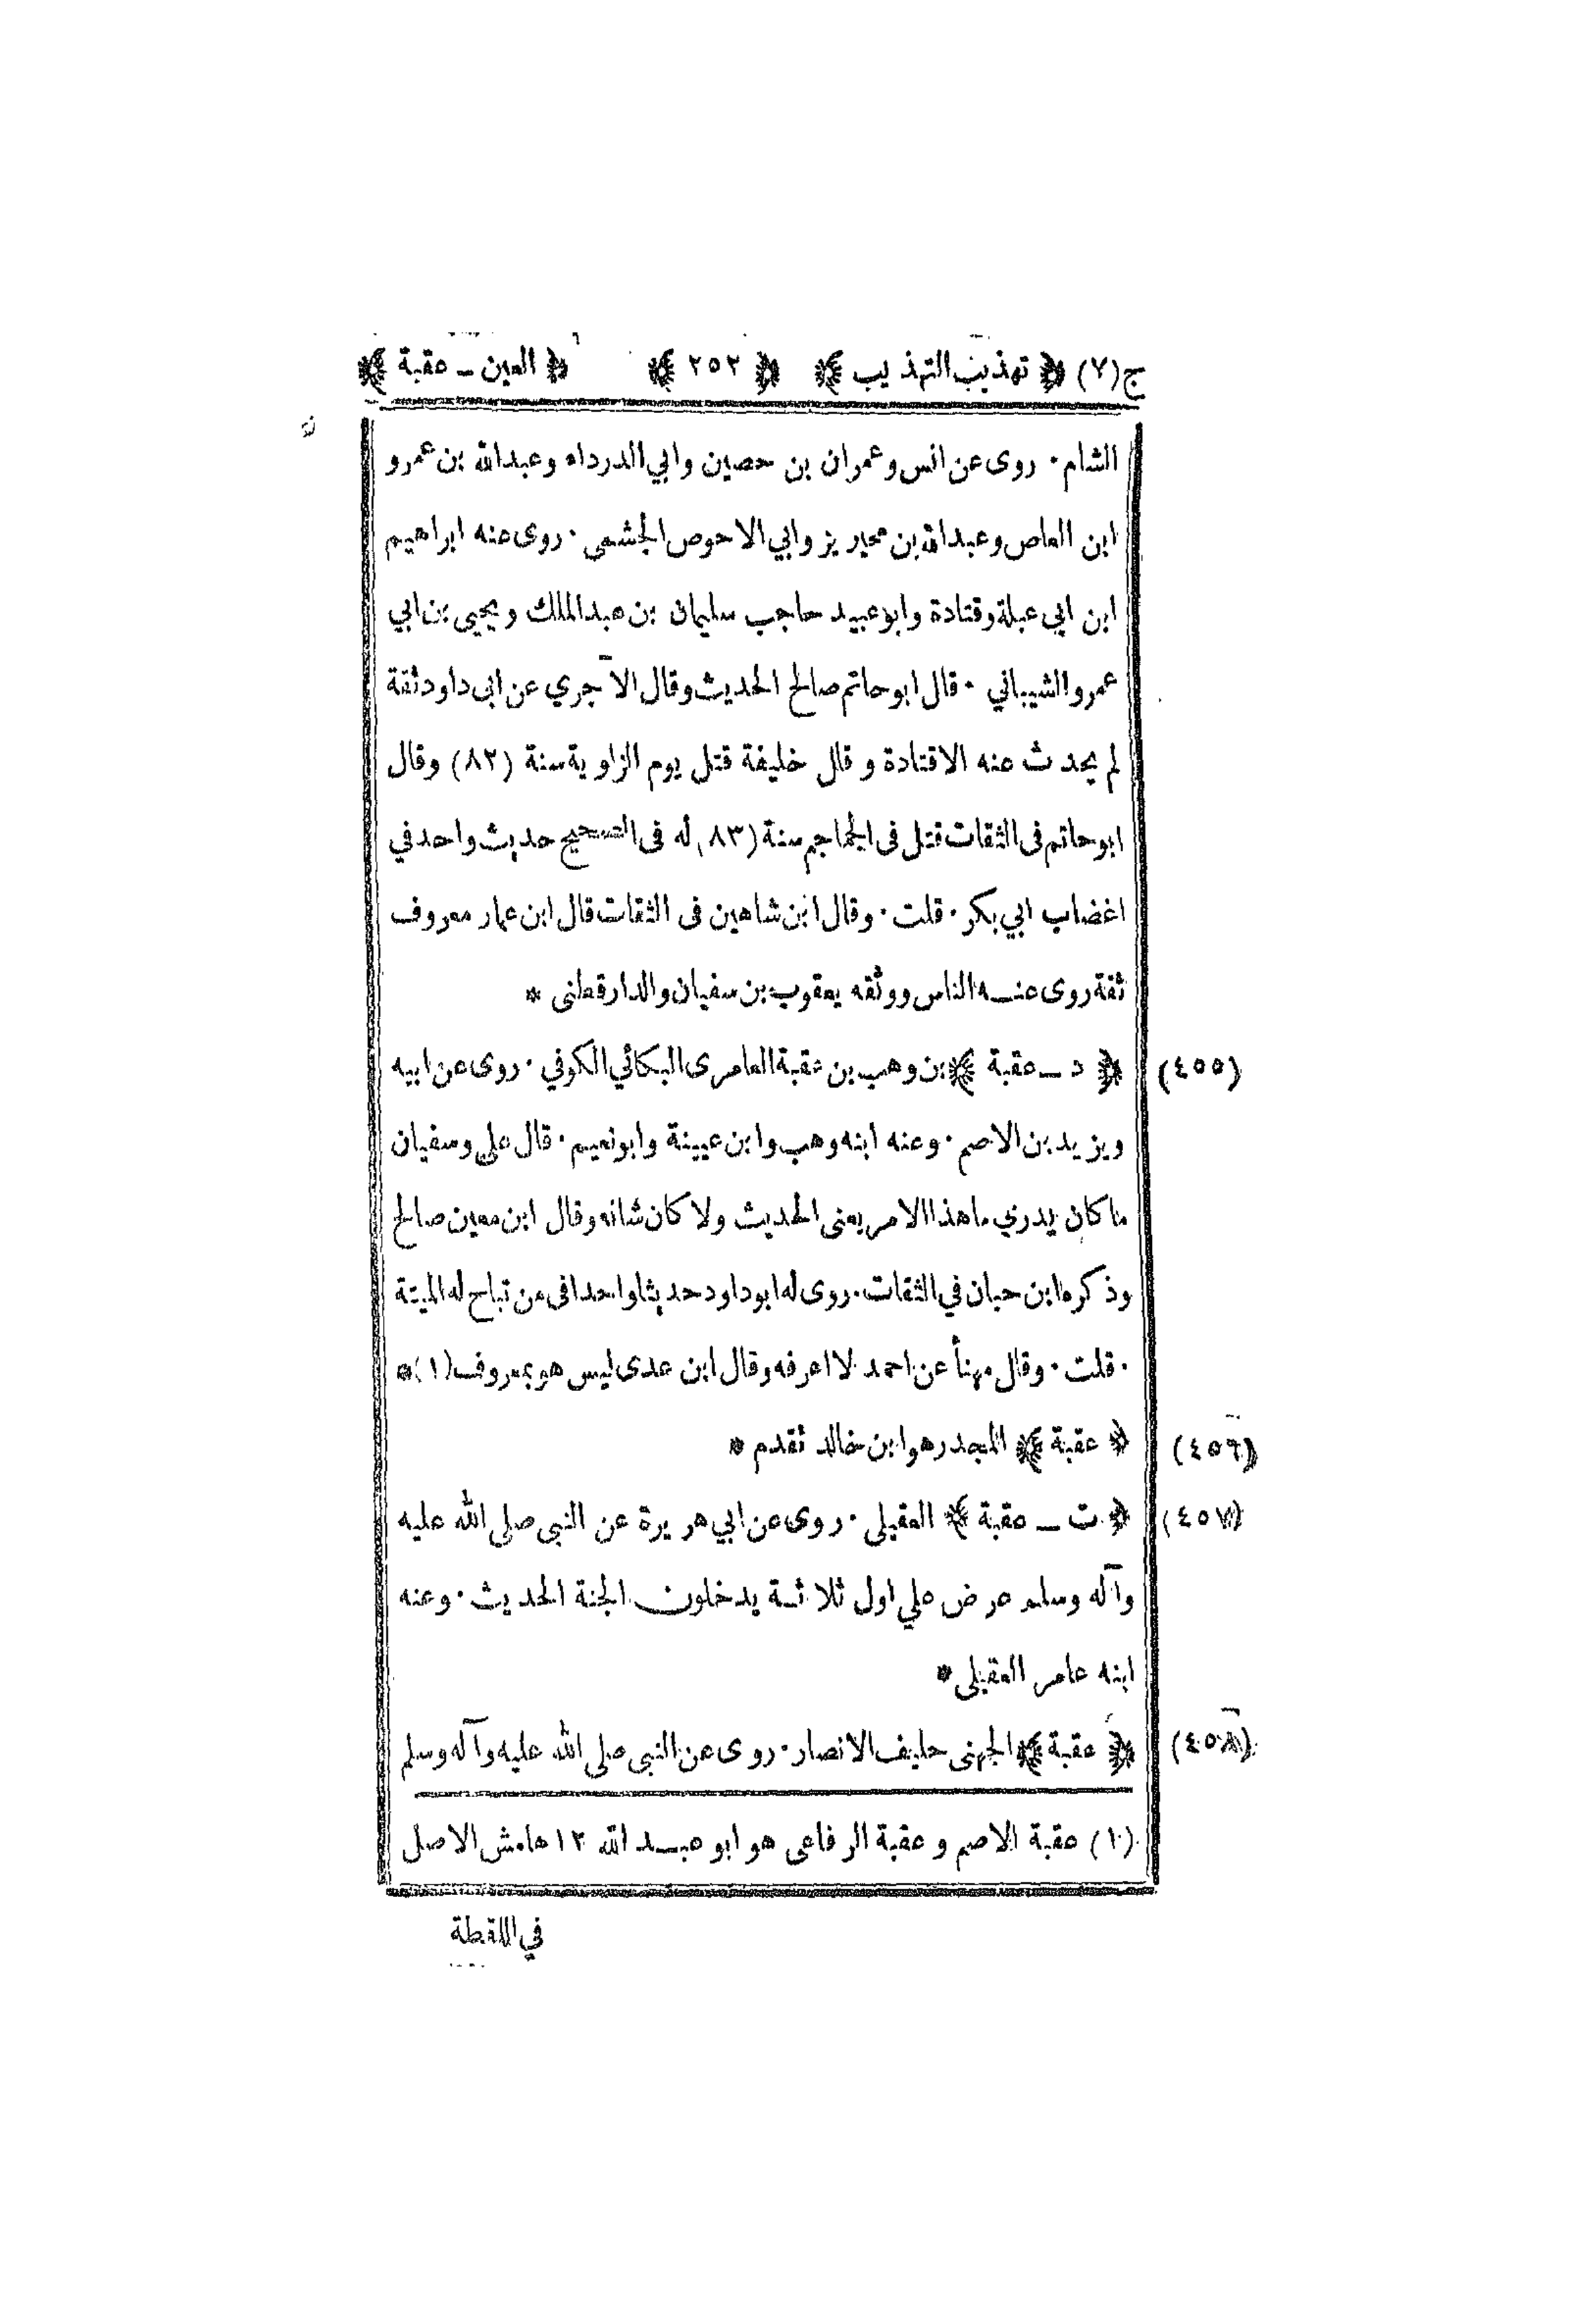 ج(٧) ﴿ تهذيب التهذيب ﴾ ﴿ ٢٥٢ ﴾ ﴿ العين ــ عقبة ﴾
الشام . روى عن انس وعمران بن حصين وابي الدرداء وعبدالله بن عمرو
ابن العاص وعبدالله بن محيريز وابي الاحوص الجشمى . روى عنه ابراهيم
ابن ابي عبلة وقتادة وابو عبيد حاجب سليمان بن عبدالملك ويحيى بن ابي
عمرو الشيباني . قال ابو حاتم صالح الحديث وقال الآجري عن ابى داود ثقة
لم يحدث عنه الاقتادة و قال خليفة قتل يوم الزاوية سنة (٨٢) وقال
ابوحاتم فى الثقات قتل فى الجماجم سنة (٨٣) له فى الصحيح حديث واحد في
اغضاب ابي بكر . قلت . وقال ابن شاهين فى الثقات قال ابن عمار معروف
ثقة روى عنه الناس ووثقه يعقوب بن سفيان والدارقطنى *
(٤٥٥) ﴿ د ــ عقبة ﴾ بن وهب بن عقبة العامرى البكائي الكوفي . روى عن ابيه
ويزيد بن الاصم . وعنه ابنه وهب وابن عيينة وابونعيم . قال علي وسفيان
ما كان يدري ما هذا الامر يعنى الحديث ولا كان شانه وقال ابن معين صالح
وذكره ابن حبان في الثقات . روى له ابوداود حديثا واحدا فى من تباح له الميتة
. قلت . وقال مهنأ عن احمد لا اعرفه وقال ابن عدى ليس هو بمعروف (١) *
(٤٥٦) ﴿ عقبة ﴾ المجدر هو ابن خالد تقدم *
(٤٥٧) ﴿ ت ــ عقبة ﴾ العقيلى . روى عن ابي هريرة عن النبى صلى الله عليه
وآله وسلم عرض علي اول ثلاثة يدخلون الجنة الحديث . وعنه
ابنه عامر العقيلى *
(٤٥٨) ﴿ عقبة ﴾ الجهنى حليف الانصار . روى عن النبى صلى الله عليه وآله وسلم
(١) عقبة الاصم و عقبة الرفاعى هو ابو عبد الله ١٢ هامش الاصل
في اللقطة